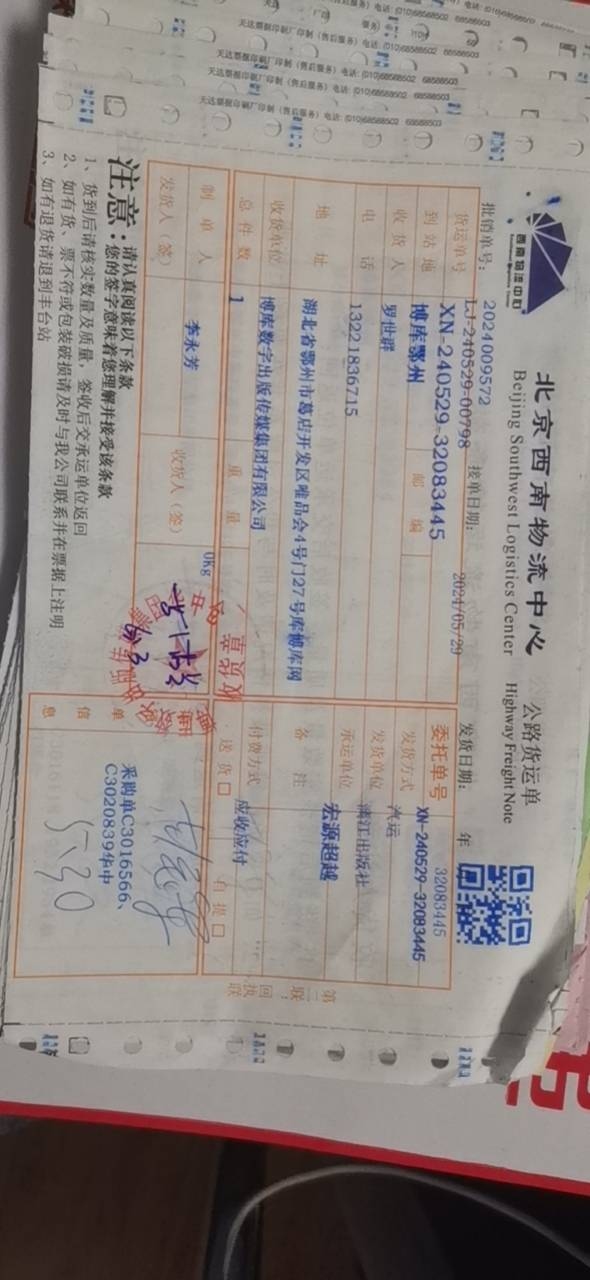 天达票据印刷厂印制 (售后服务) 电话: (010)68588502 68588503
天达票据印刷厂印制 (售后服务) 电话: (010)68588502 68588503
天达票据印刷厂印制 (售后服务) 电话: (010)68588502 68588503
天达票据印刷厂印制 (售后服务) 电话: (010)68588502 68588503
西南物流中心
北京西南物流中心 公路货运单
Beijing Southwest Logistics Center Highway Freight Note
批销单号: 2024009572 接单日期: 2024/05/29 发货日期: 年
货运单号 LJ-240529-00798
XN-240529-32083445
委托单号 32083445
XN-240529-32083445
到站地 博库鄂州 邮编 发货方式 汽运
收货人 罗世群 发货单位 漓江出版社
电话 13221836715 承运单位 宏源超越
地址 湖北省鄂州市葛店开发区唯品会4号门27号库博库网 备注
收货单位 博库数字出版传媒集团有限公司 付费方式 应收应付
总件数 1 重量 0Kg 送货口 自提口
制单人 李永芳
发货人(签) 收货人(签)
单信息 采购单C3016566、
C3020839华中
5.30
第二联:回执联
注意:请认真阅读以下条款
您的签字意味着您理解并接受该条款
1、货到后请核实数量及质量,签收后交承运单位返回
2、如有货、票不符或包装破损请及时与我公司联系并在票据上注明
3、如有退货请退到丰台站